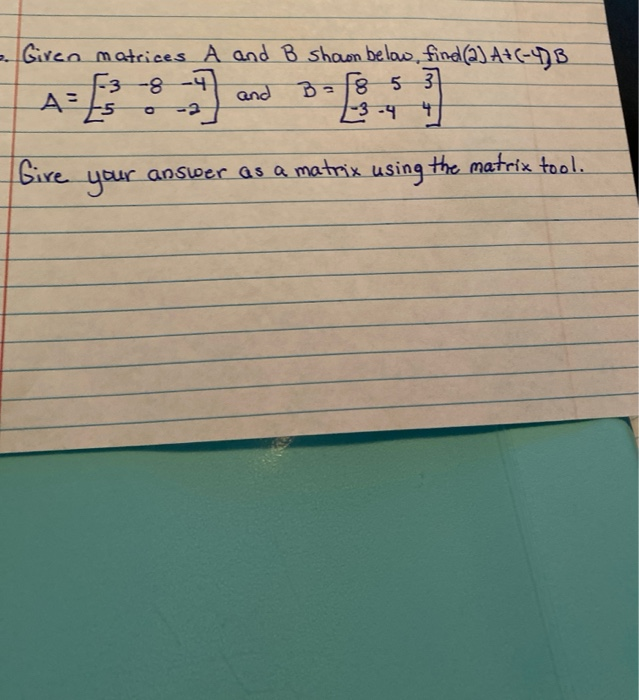 . Given matrices A and B shown below, find (2) A+(-4) B
A = [-3 -8 -4 and B = [8 5 3
-5 0 -2] -3 -4 4]
Give your answer as a matrix using the matrix tool.